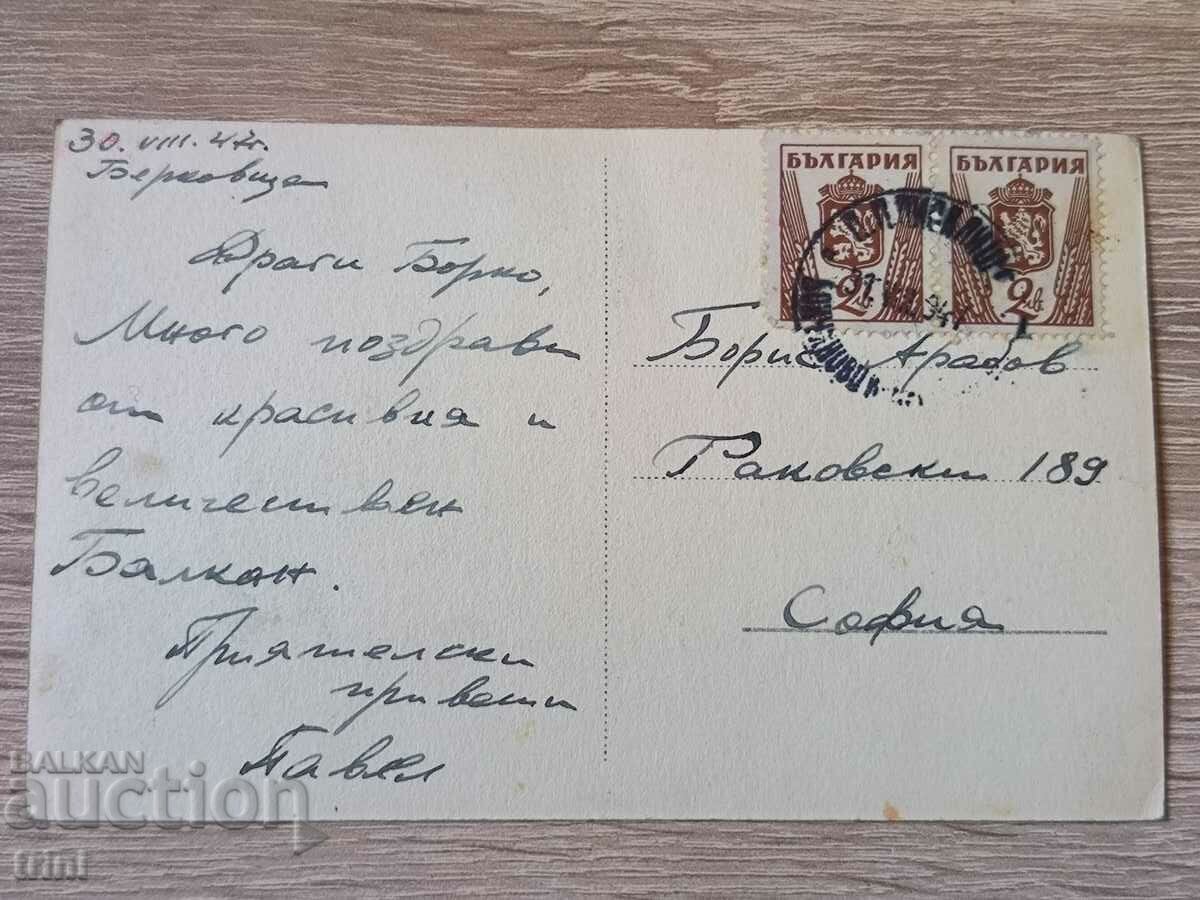 30. VIII. 47г.
Берковица
Драги Борко,
Много поздрави
от красивия и
величествен
Балкан.
Приятелски
привети
Павел
БЪЛГАРИЯ
2лв.
БЪЛГАРИЯ
2лв.
Борис Арабов
Раковски 189
София
BALKAN
auction
trini